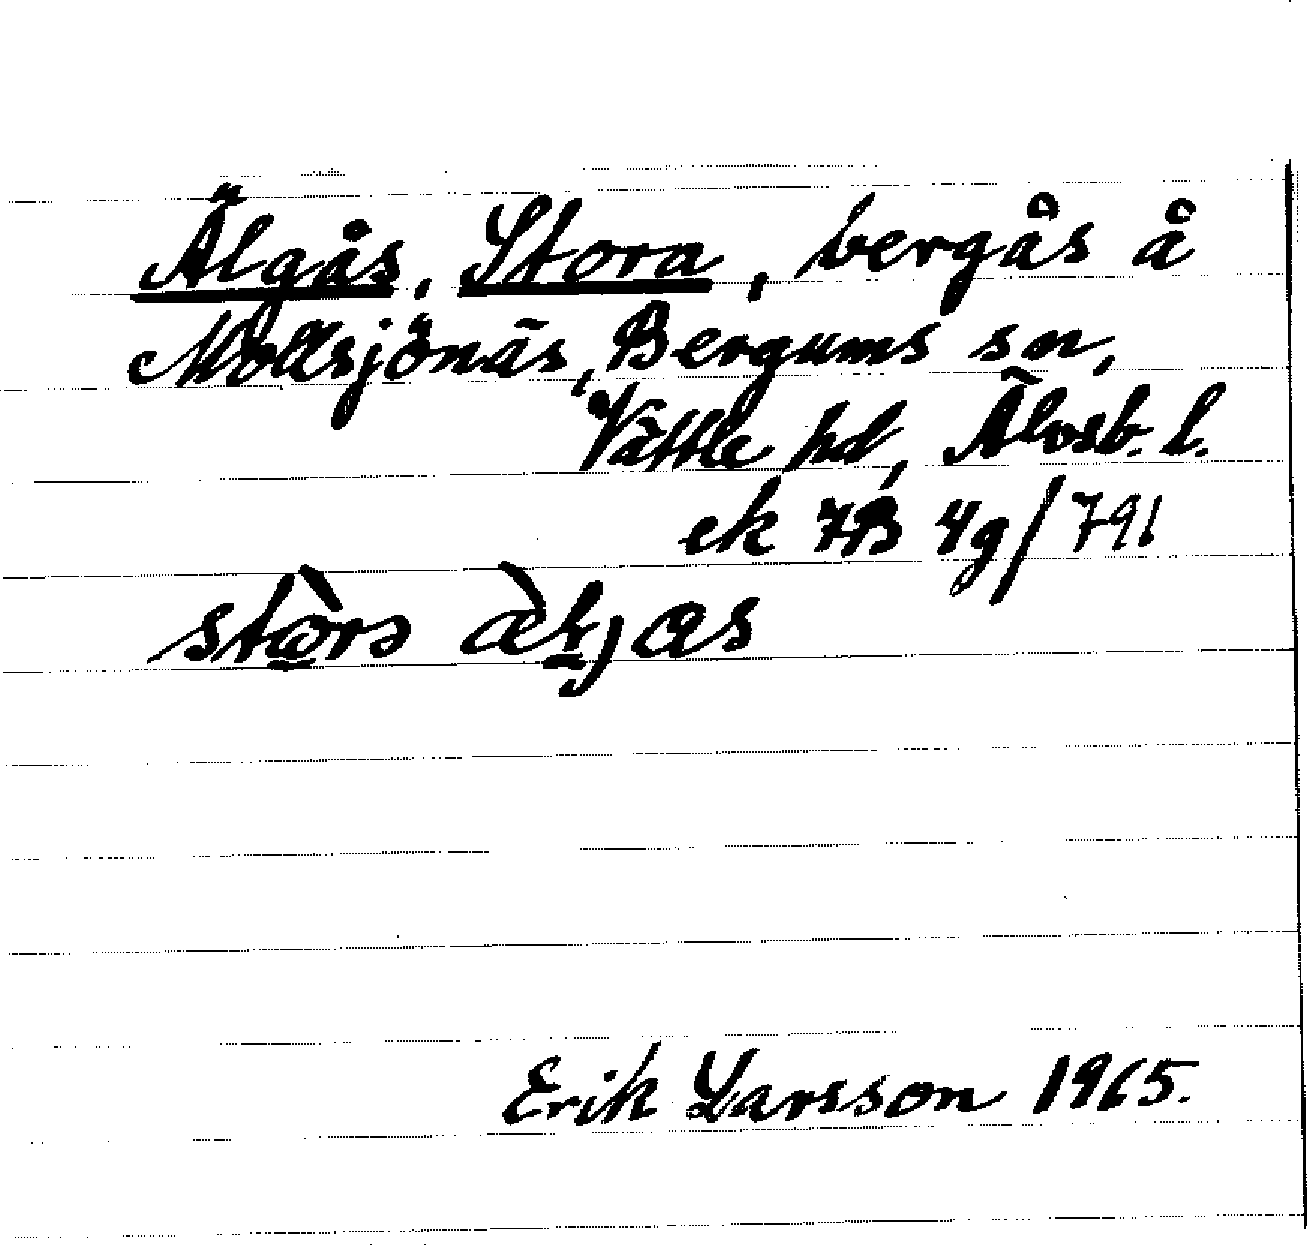 Älgås, Stora, bergås å
Mollsjönäs, Bergums sn,
Vättle hd, Älvsb. l.
ek 7B 4g/791
Erik Larsson 1965.